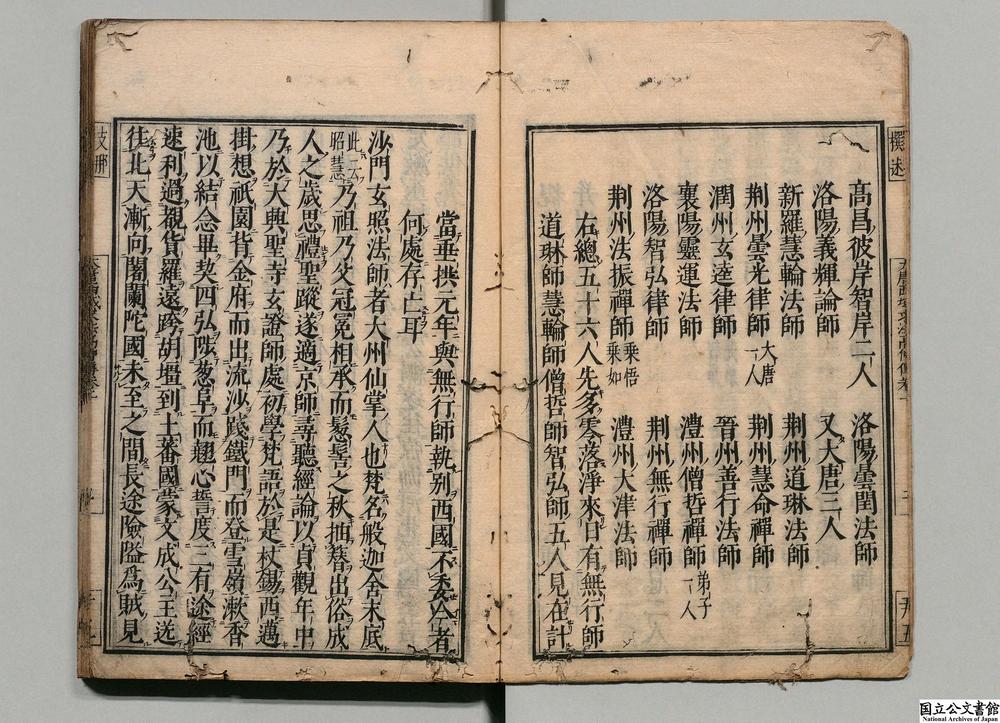 高昌彼岸智岸二人　洛陽曇閏法師
洛陽義輝論師　又大唐三人
新羅慧輪法師　荊州道琳法師
荊州曇光律師　大唐一人　荊州慧命禪師
潤州玄逵律師　晉州善行法師
襄陽靈運法師　澧州僧哲禪師　弟子一人
洛陽智弘律師　荊州無行禪師
荊州法振禪師　乘悟乘如　澧州大津法師
右總五十六人先多零落淨來日有無行師
道琳師慧輪師僧哲師智弘師五人見在計
當垂拱元年與無行師執別西國不委今者
何處存亡耳
沙門玄照法師者大州仙掌人也梵名般迦舍末底
此云昭慧乃祖乃父冠冕相承而髫髻之秋抽簪出俗成
人之歲思禮聖蹤遂適京師尋聽經論以貞觀年中
乃於大興聖寺玄證師處初學梵語於是杖錫西邁
掛想祇園背金府而出流沙踐鐵門而登雪嶺漱香
池以結念畢契四弘陟葱阜而翹心誓度三有途經
速利過覩貨羅遠跨胡壃到土蕃國蒙文成公主送
往北天漸向闍蘭陀國未至之間長途險隘爲賊見
撰述
支那
国立公文書館
National Archives of Japan